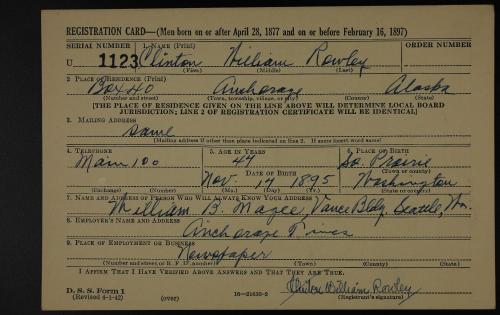 REGISTRATION CARD—(Men born on or after April 28, 1877 and on or before February 16, 1897)
SERIAL NUMBER 1. NAME (Print) ORDER NUMBER
U 1123 Clinton William Rowley
(First) (Middle) (Last)
2. PLACE OF RESIDENCE (Print)
Box 40 Anchorage Alaska
(Number and street) (Town, township, village, or city) (County) (State)
[THE PLACE OF RESIDENCE GIVEN ON THE LINE ABOVE WILL DETERMINE LOCAL BOARD
JURISDICTION; LINE 2 OF REGISTRATION CERTIFICATE WILL BE IDENTICAL]
3. MAILING ADDRESS
Same
[Mailing address if other than place indicated on line 2. If same insert word same]
4. TELEPHONE 5. AGE IN YEARS 6. PLACE OF BIRTH
Main 100 47 So. Prairie
DATE OF BIRTH (Town or county)
Nov. 14 1895 Washington
(Exchange) (Number) (Mo.) (Day) (Yr.) (State or country)
7. NAME AND ADDRESS OF PERSON WHO WILL ALWAYS KNOW YOUR ADDRESS
William B. Magee, Vance Bldg. Seattle, Wn.
8. EMPLOYER'S NAME AND ADDRESS
Anchorage Times
9. PLACE OF EMPLOYMENT OR BUSINESS
Newspaper
(Number and street or R. F. D. number) (Town) (County) (State)
I AFFIRM THAT I HAVE VERIFIED ABOVE ANSWERS AND THAT THEY ARE TRUE.
D. S. S. Form 1 Clinton William Rowley
(Revised 4-1-42) (over) 16—21630-2 (Registrant's signature)